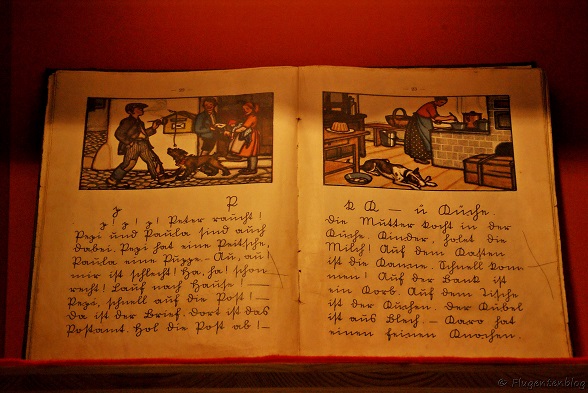 p P
p! p! p! Peter raucht!
Pepi und Paula sind auch
dabei. Pepi hat eine Peitsche,
Paula eine Puppe. – Au, au!
mir ist schlecht! Ha, ha! schon
recht! Lauf nach Hause! —
Pepi, schnell auf die Post! —
Da ist der Brief. Dort ist das
Postamt. Hol die Post ab! –
k K — ü Küche
Die Mutter kocht in der
Küche. Kinder, holet die
Milch! Auf dem Kasten
ist die Kanne. Schnell kom-
men! Auf der Bank ist
ein Korb. Auf dem Tische
ist der Kuchen. Der Kübel
ist aus Blech. – Karo hat
einen feinen Knochen.
© Flugentenblog